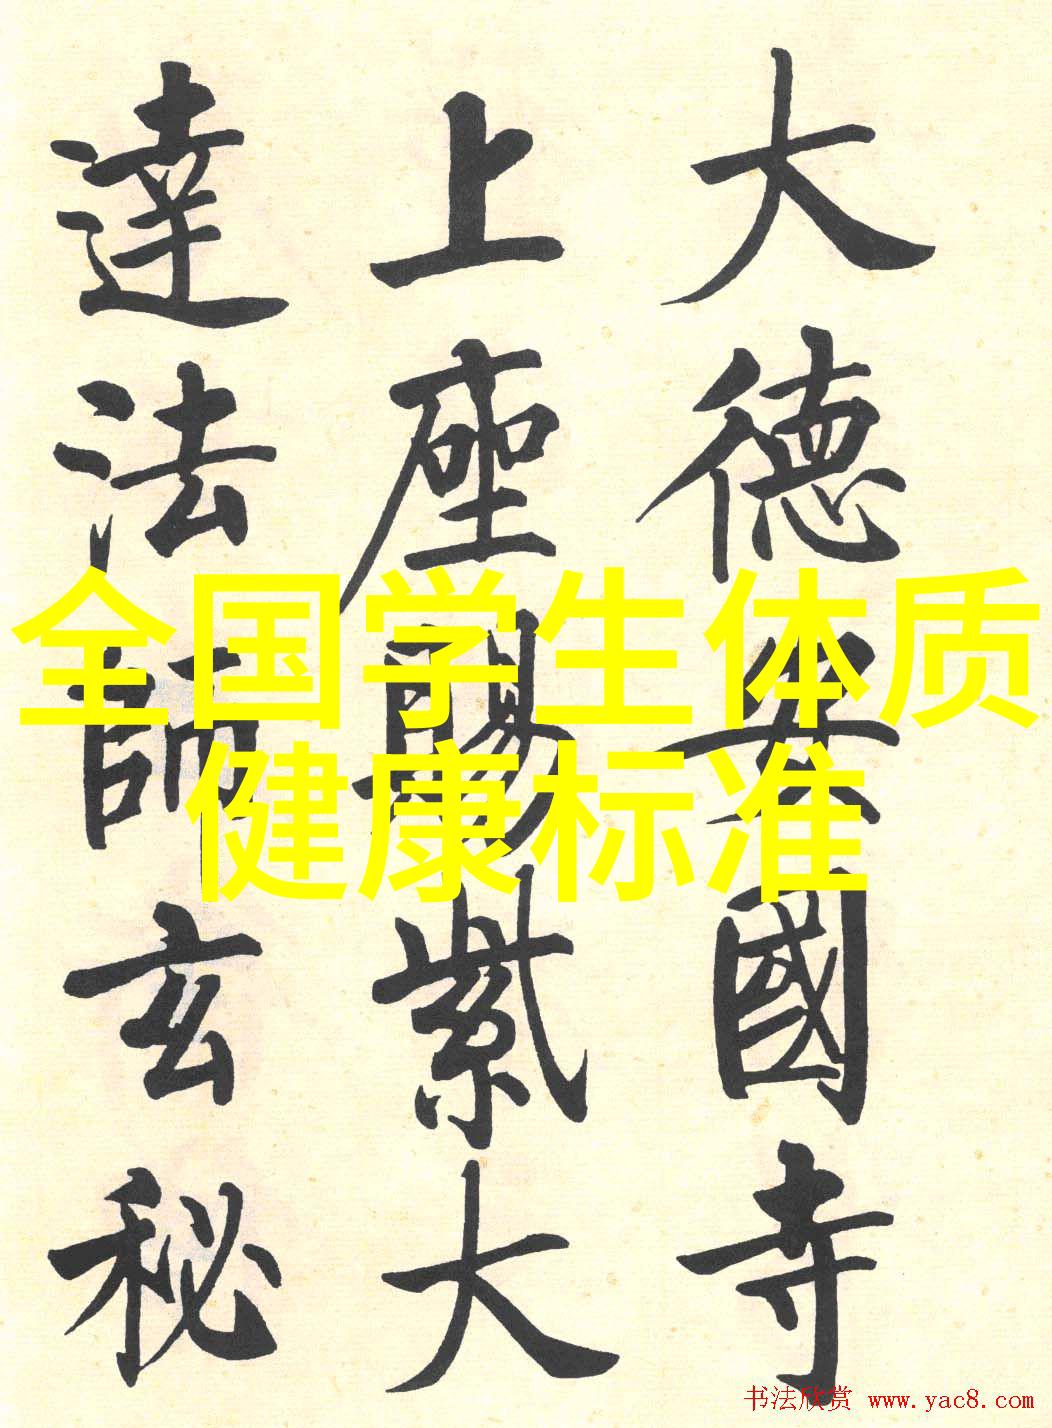 大德安國寺
上座賜紫大
達法師玄秘
全国学生体质
健康标准
书法欣赏 www.yac8.com